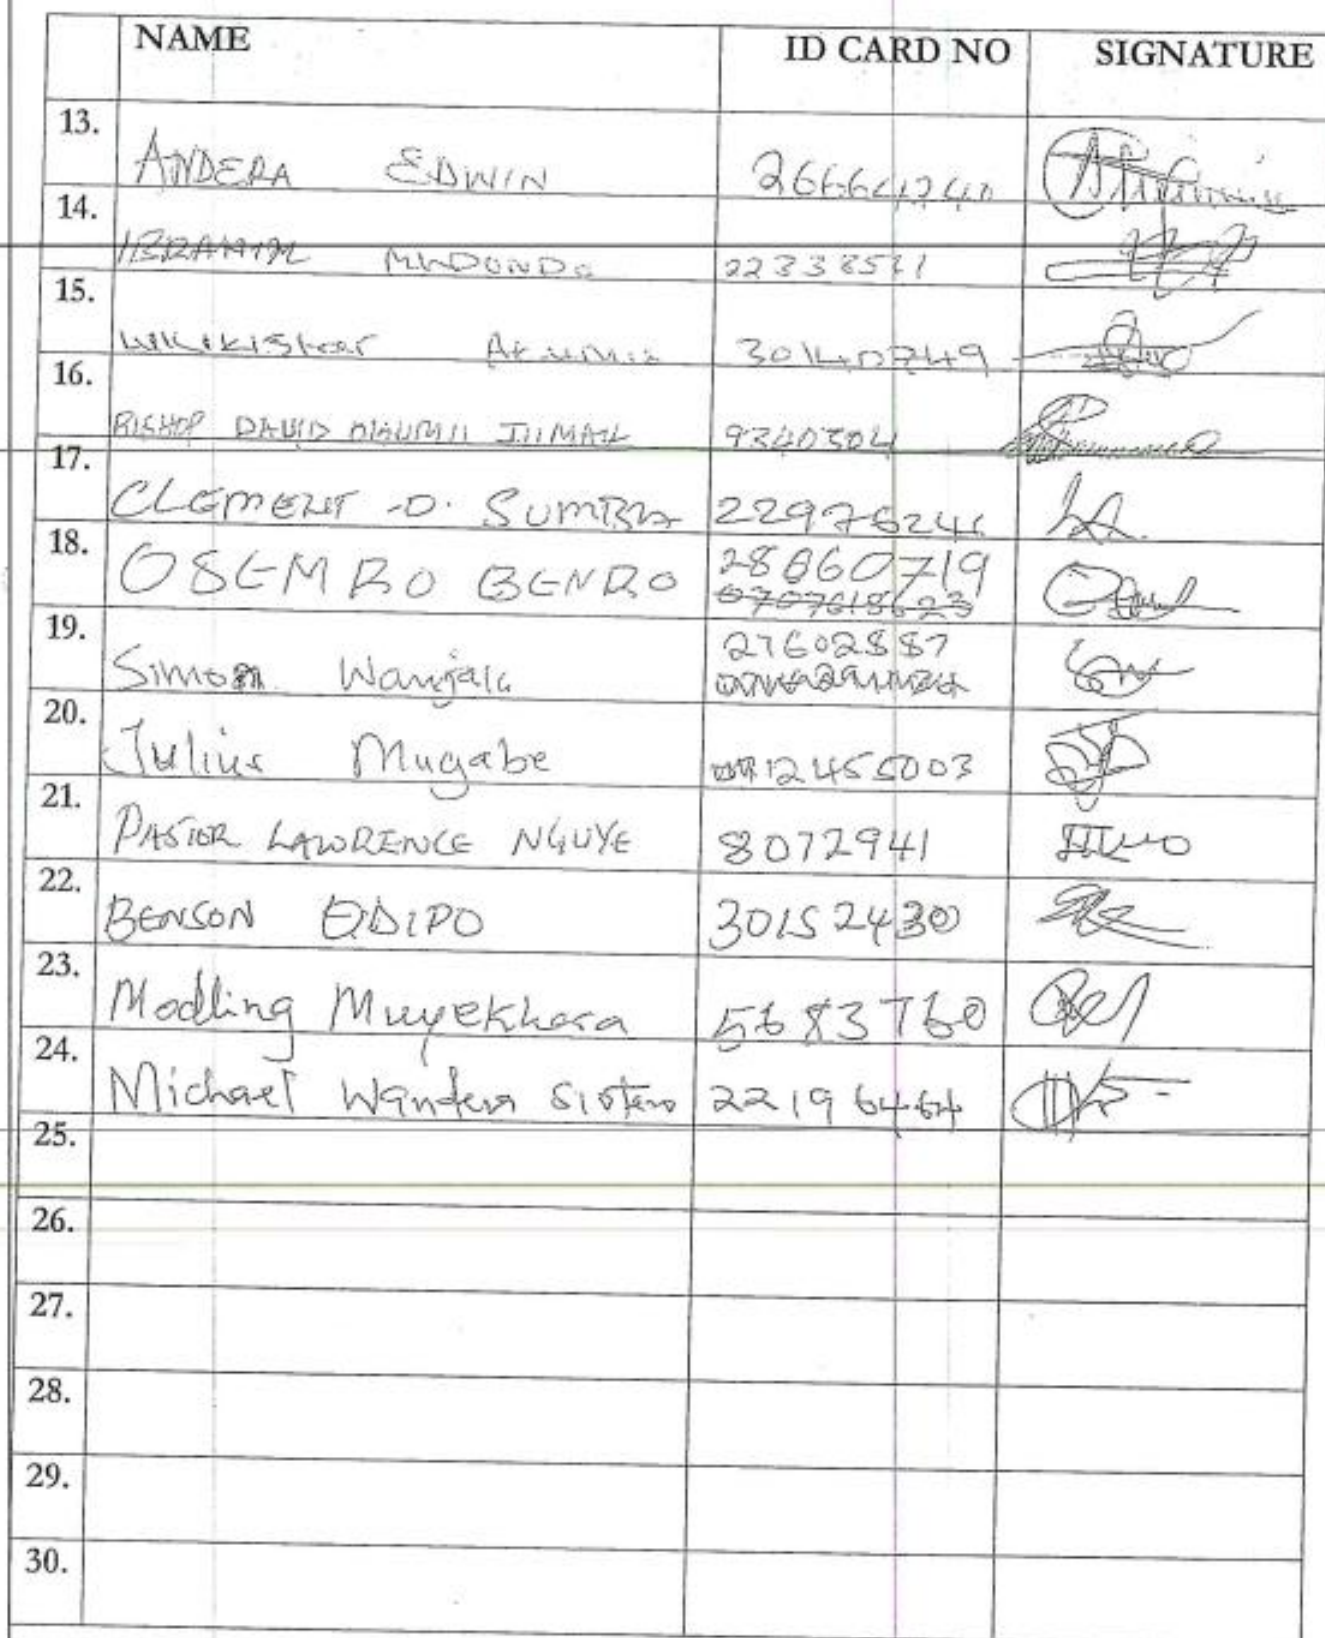 NAME ID CARD NO SIGNATURE
13. ANDERA EDWIN
14. IBRAHIM 22338511
15. 30140749
16. BISHOP DAVID 9340304
17. CLEMENT O. SUMBA 22976241
18. OSEMBO BENRO 28860719
0707618623
19. Simon Wanjala 27602887
20. Julius Mugabe 12455003
21. PASTOR LAWRENCE NGUYE 8072941
22. BENSON ODIPO 30152430
23. Modling Muyekhera 5683760
24. Michael Wandera 22196464
25.
26.
27.
28.
29.
30.